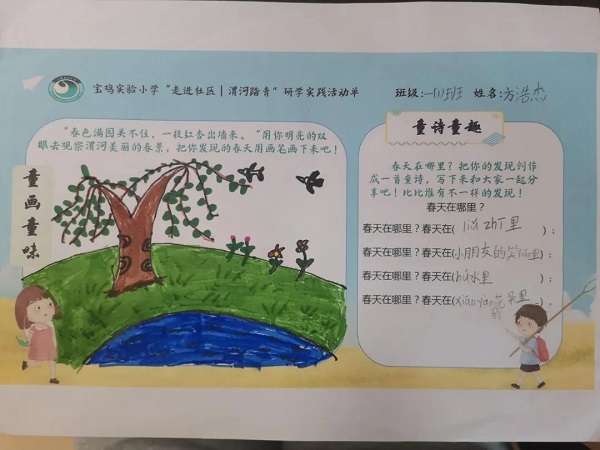 宝鸡实验小学“走进社区|渭河踏青”研学实践活动单
班级:一(1)班 姓名:方浩杰
“春色满园关不住，一枝红杏出墙来。”用你明亮的双
眼去观察渭河美丽的春景，把你发现的春天用画笔画下来吧！
童画童味
童诗童趣
春天在哪里？把你的发现创作
成一首童诗，写下来和大家一起分
享吧！比比谁有不一样的发现！
春天在哪里？
春天在哪里？春天在( liǔ zhī里 )；
春天在哪里？春天在(小朋友的笑脸里)；
春天在哪里？春天在(hú水里 )；
春天在哪里？春天在(xiān yàn的花朵里 )。